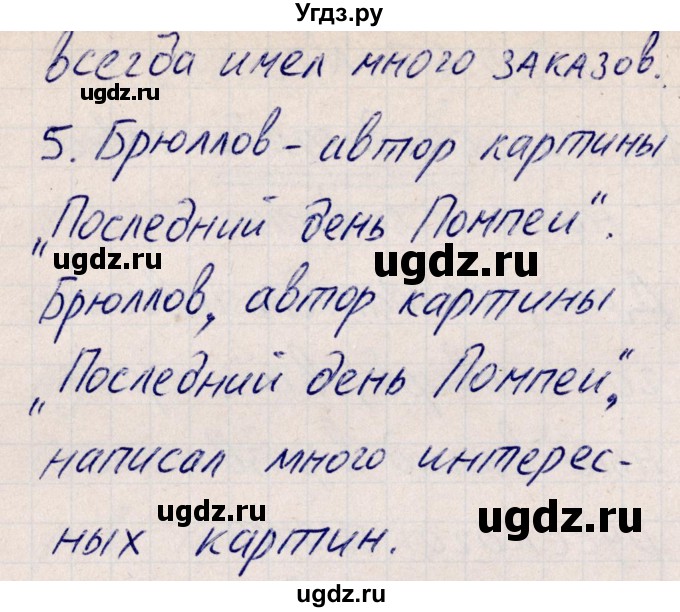 Угдз.ру
всегда имел много заказов.
ugdz.ru
5. Брюллов - автор картины
„Последний день Помпеи“.
ugdz.ru
ugdz.ru
Брюллов, автор картины
„Последний день Помпеи“,
написал много интерес-
ugdz.ru
ugdz.ru
ных картин.
ugdz.ru